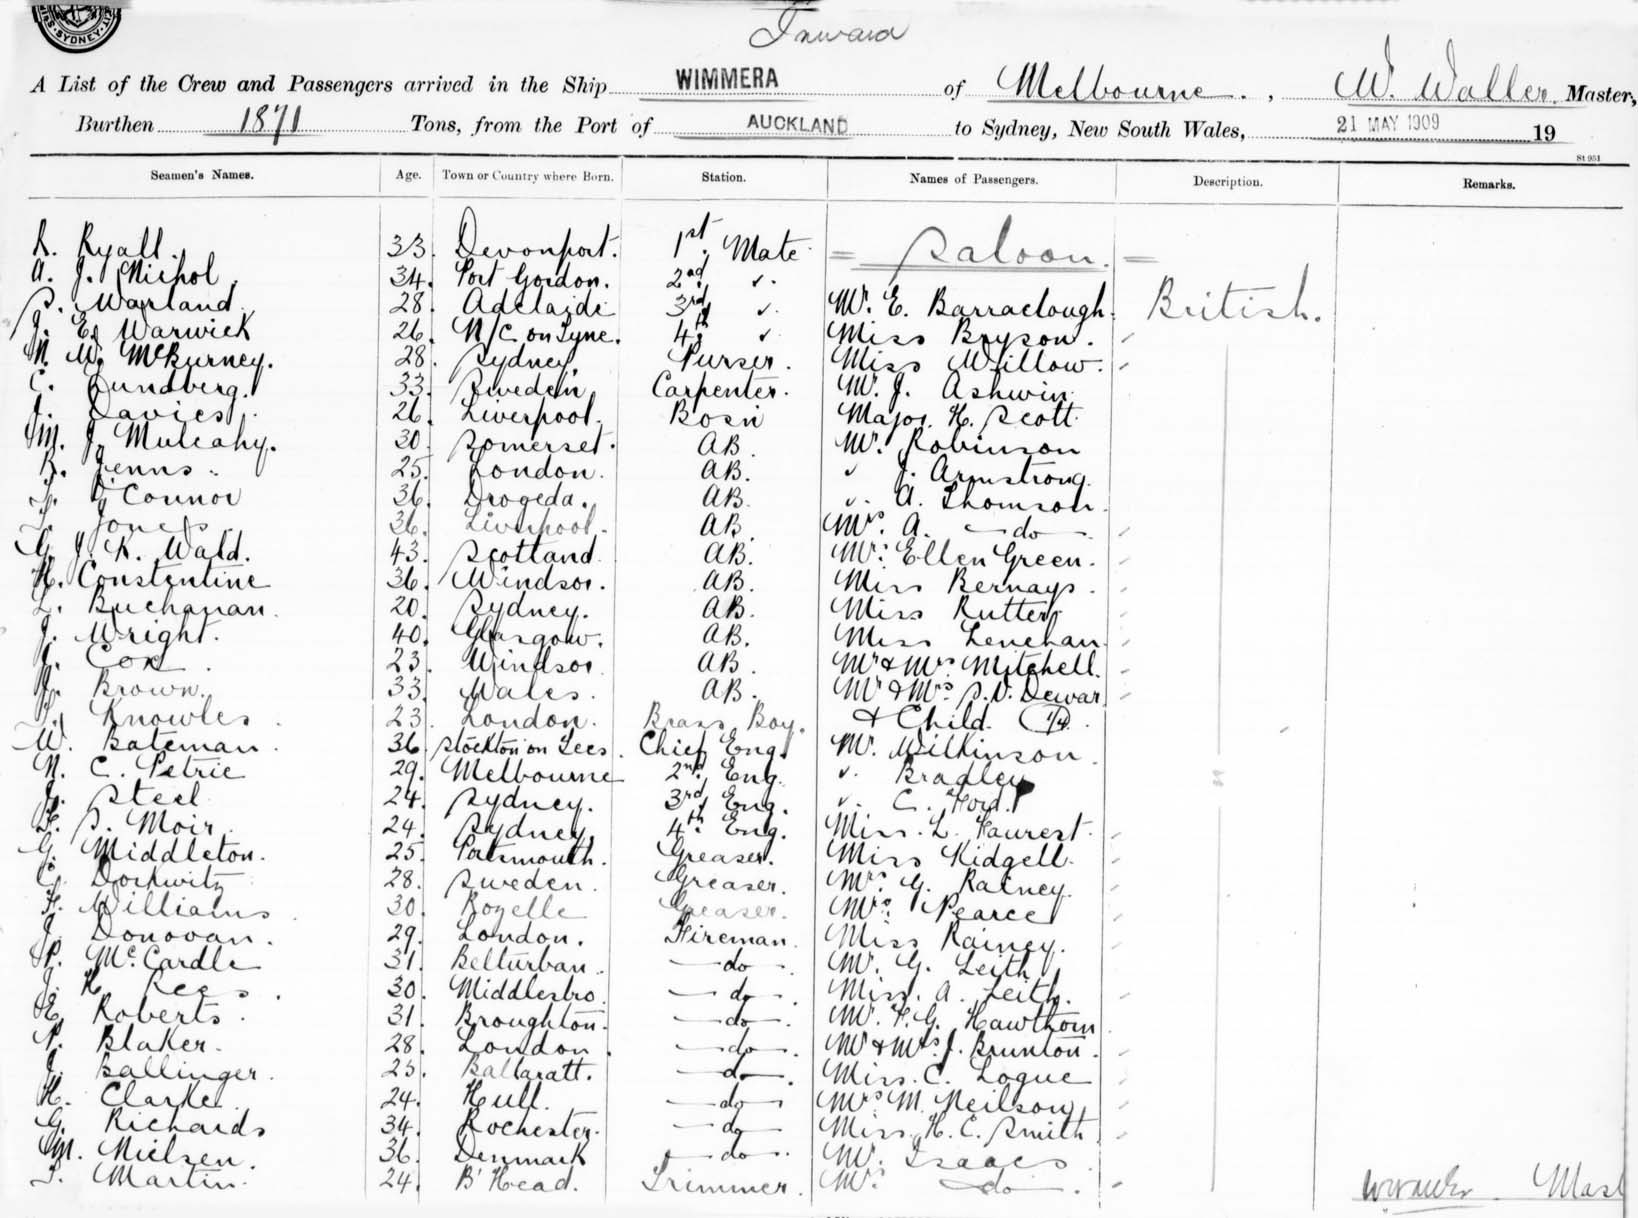 SYDNEY
Inward
A List of the Crew and Passengers arrived in the Ship WIMMERA of Melbourne, W. Waller Master,
Burthen 1871 Tons, from the Port of AUCKLAND to Sydney, New South Wales, 21 MAY 1909 19
St 951
Seamen's Names. Age. Town or Country where Born. Station. Names of Passengers. Description. Remarks.
R. Ryall. 33. Devonport. 1st Mate = Saloon. =
A. J. Nichol. 34. Port Gordon. 2nd "
S. Warland. 28. Adelaide 3rd " Mr. E. Barraclough. British.
J. E. Warwick 26. N/C on Tyne. 4th " Miss Bryson.
N. W. McBurney. 28. Sydney. Purser. Miss Willow.
C. Lundberg. 33. Sweden Carpenter. Mr. J. Ashwin.
J. Davies. 26. Liverpool. Bosn Major. H. Scott.
M. J. Mulcahy. 30. Somerset. AB. Mr. Robinson
R. Jenns. 25. London. AB. " J. Armstrong.
J. O'Connor 36. Drogeda. AB. " A. Thomson.
Jones. 36. Liverpool. AB. Mrs. A. do
G. J. K. Wald. 43. Scotland. AB. Mrs. Ellen Green.
H. Constentine 36. Windsor. AB. Miss Bernays.
L. Buchanan. 20. Sydney. AB. Miss Rutter
J. Wright. 40. Glasgow. AB. Miss Lenehan.
J. Cox. 23. Windsor. AB. Mr & Mrs. Mitchell.
J. Brown. 33. Wales. AB. Mr & Mrs. S. V. Dewar
Knowles. 23. London. Brass Boy. & Child. (1/4).
W. Bateman. 36 Stockton on Tees. Chief Eng. Mr. Wilkinson
N. C. Petrie 29. Melbourne 2nd. Eng. " Bradley
J. Steel 24. Sydney. 3rd. Eng. " C. Ford.
D. S. Moir. 24. Sydney. 4th. Eng. Miss. L. Faurest.
G. Middleton. 25. Portsmouth. Greaser. Miss Kidgell.
C. Dorkwitz 28. Sweden. Greaser. Mrs. G. Rainey.
F. Williams. 30. Rozelle Greaser. Mrs. Pearce
J. Donovan. 29. London. Fireman. Miss Rainey.
P. McCardle 31. Belturban. do. Mr. G. Leith
J. H. Rees. 30. Middlesbro. do. Miss. A. Leith.
E. Roberts. 31. Broughton. do. Mr. F. G. Hawthorn
P. Blaker. 28. London. do. Mr & Mrs. J. Brunton.
J. Ballinger. 23. Ballaratt. do. Miss. C. Logue
H. Clarke. 24. Hull. do Mrs M. Neilson
G. Richards 34. Rochester. do Miss. H. C. Smith
M. Nielsen. 36. Denmark do. Mr. Isaacs
T. Martin. 24. B'Head. Trimmer. Mrs. do.
Mast